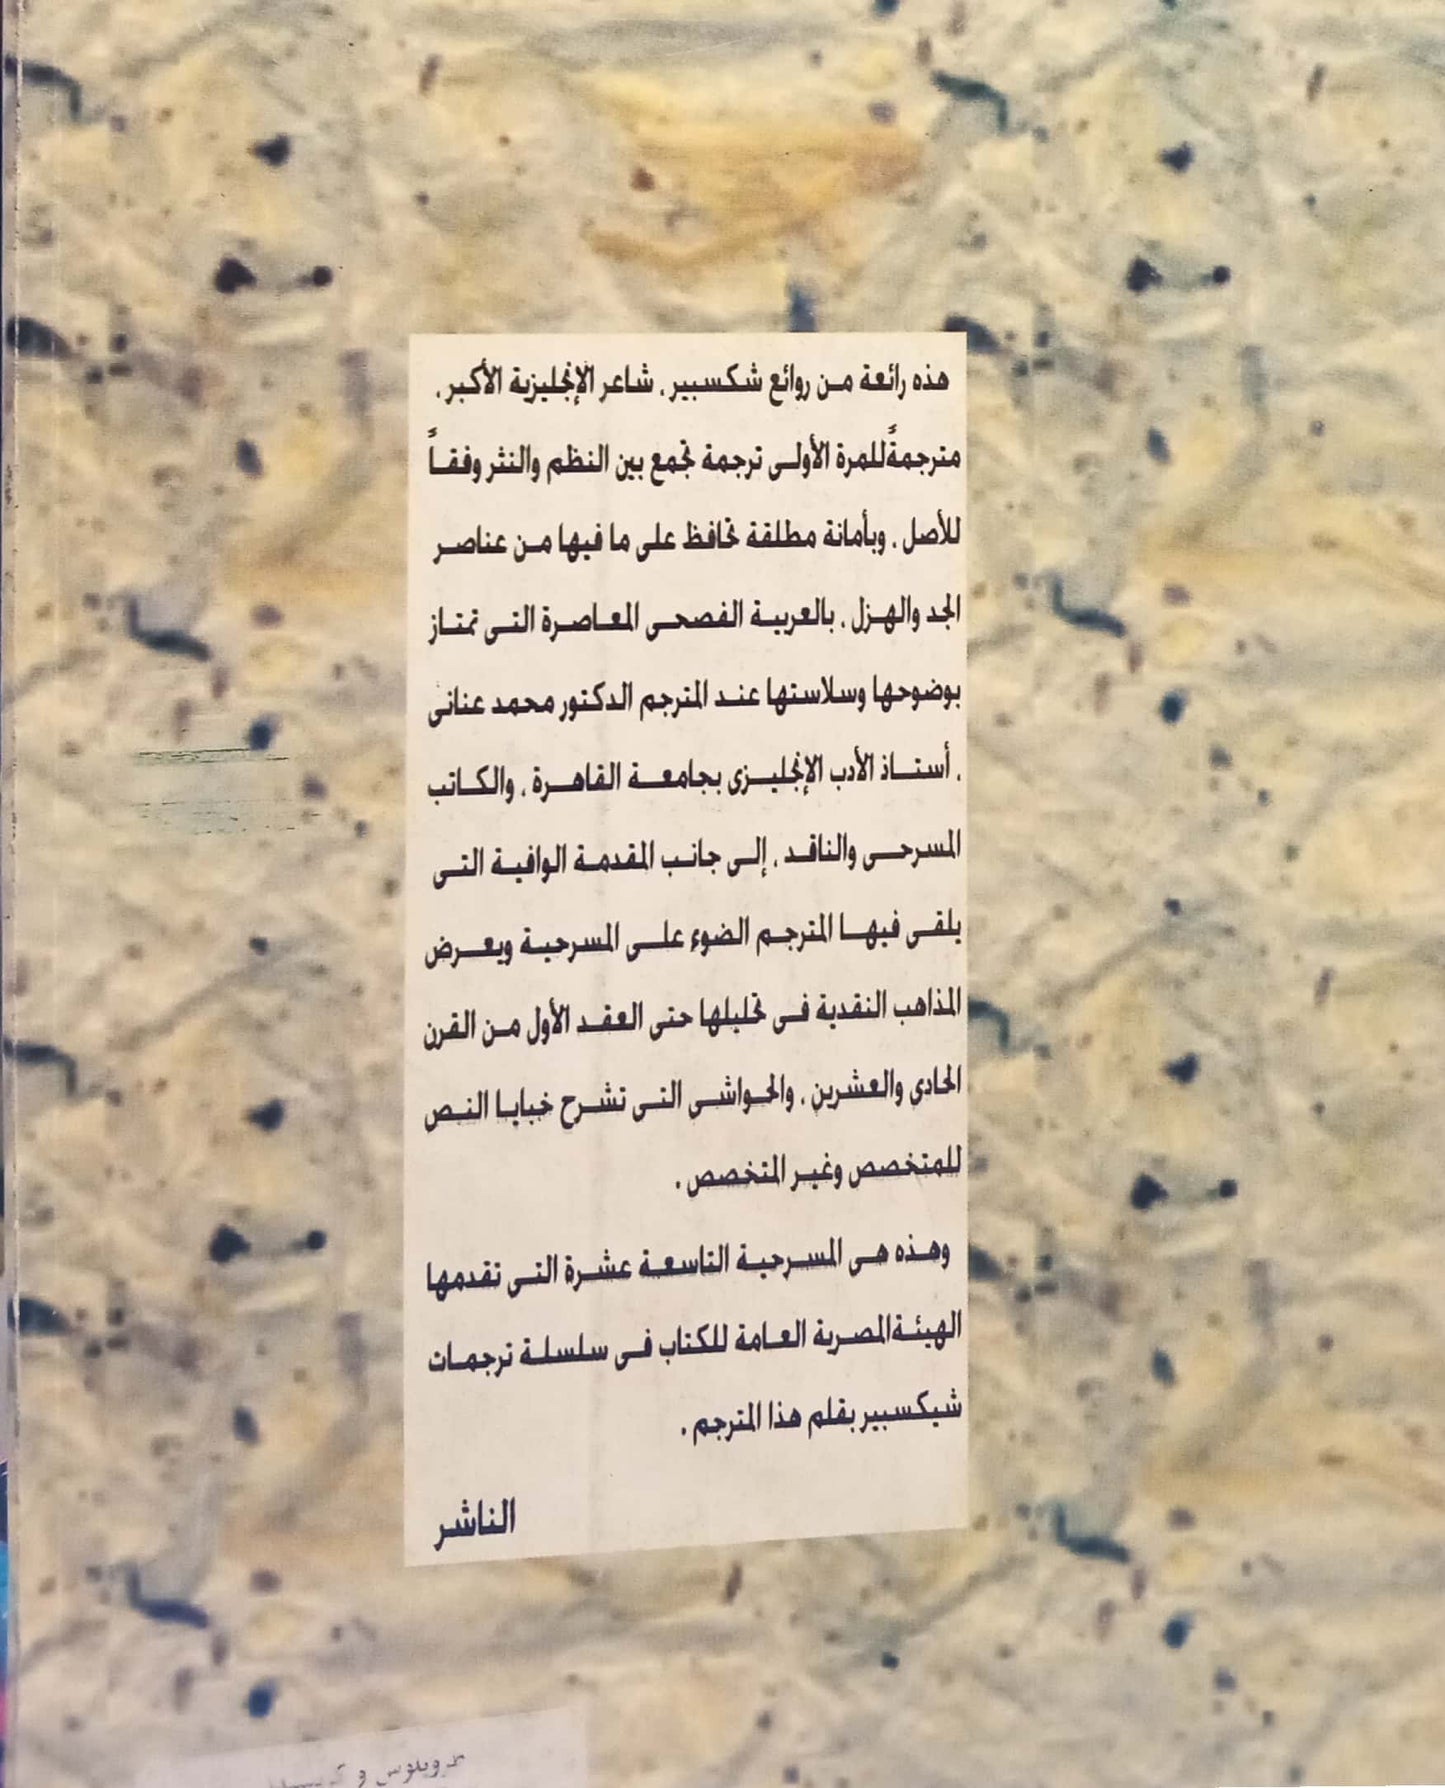 هذه رائعة من روائع شكسبير ، شاعر الإنجليزية الأكبر ،
مترجمةً للمرة الأولى ترجمة تجمع بين النظم والنثر وفقاً
للأصل ، وبأمانة مطلقة تحافظ على ما فيها من عناصر
الجد والهزل ، بالعربية الفصحى المعاصرة التى تمتاز
بوضوحها وسلاستها عند المترجم الدكتور محمد عنانى
، أستاذ الأدب الإنجليزى بجامعة القاهرة ، والكاتب
المسرحى والناقد ، إلى جانب المقدمة الوافية التى
يلقى فيها المترجم الضوء على المسرحية ويعرض
المذاهب النقدية فى تحليلها حتى العقد الأول من القرن
الحادى والعشرين ، والحواشى التى تشرح خبايا النص
للمتخصص وغير المتخصص .
وهذه هى المسرحية التاسعة عشرة التى تقدمها
الهيئة المصرية العامة للكتاب فى سلسلة ترجمات
شيكسبير بقلم هذا المترجم .
الناشر
و